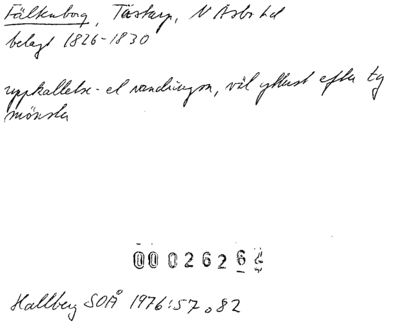 Fälkenborg, Tåstarp, N Åsbo hd
belagt 1826-1830
uppkallelse- el vandringsn, väl ytterst efter ty
mönster
00026262
Hallberg SOÅ 1976:57 o 82